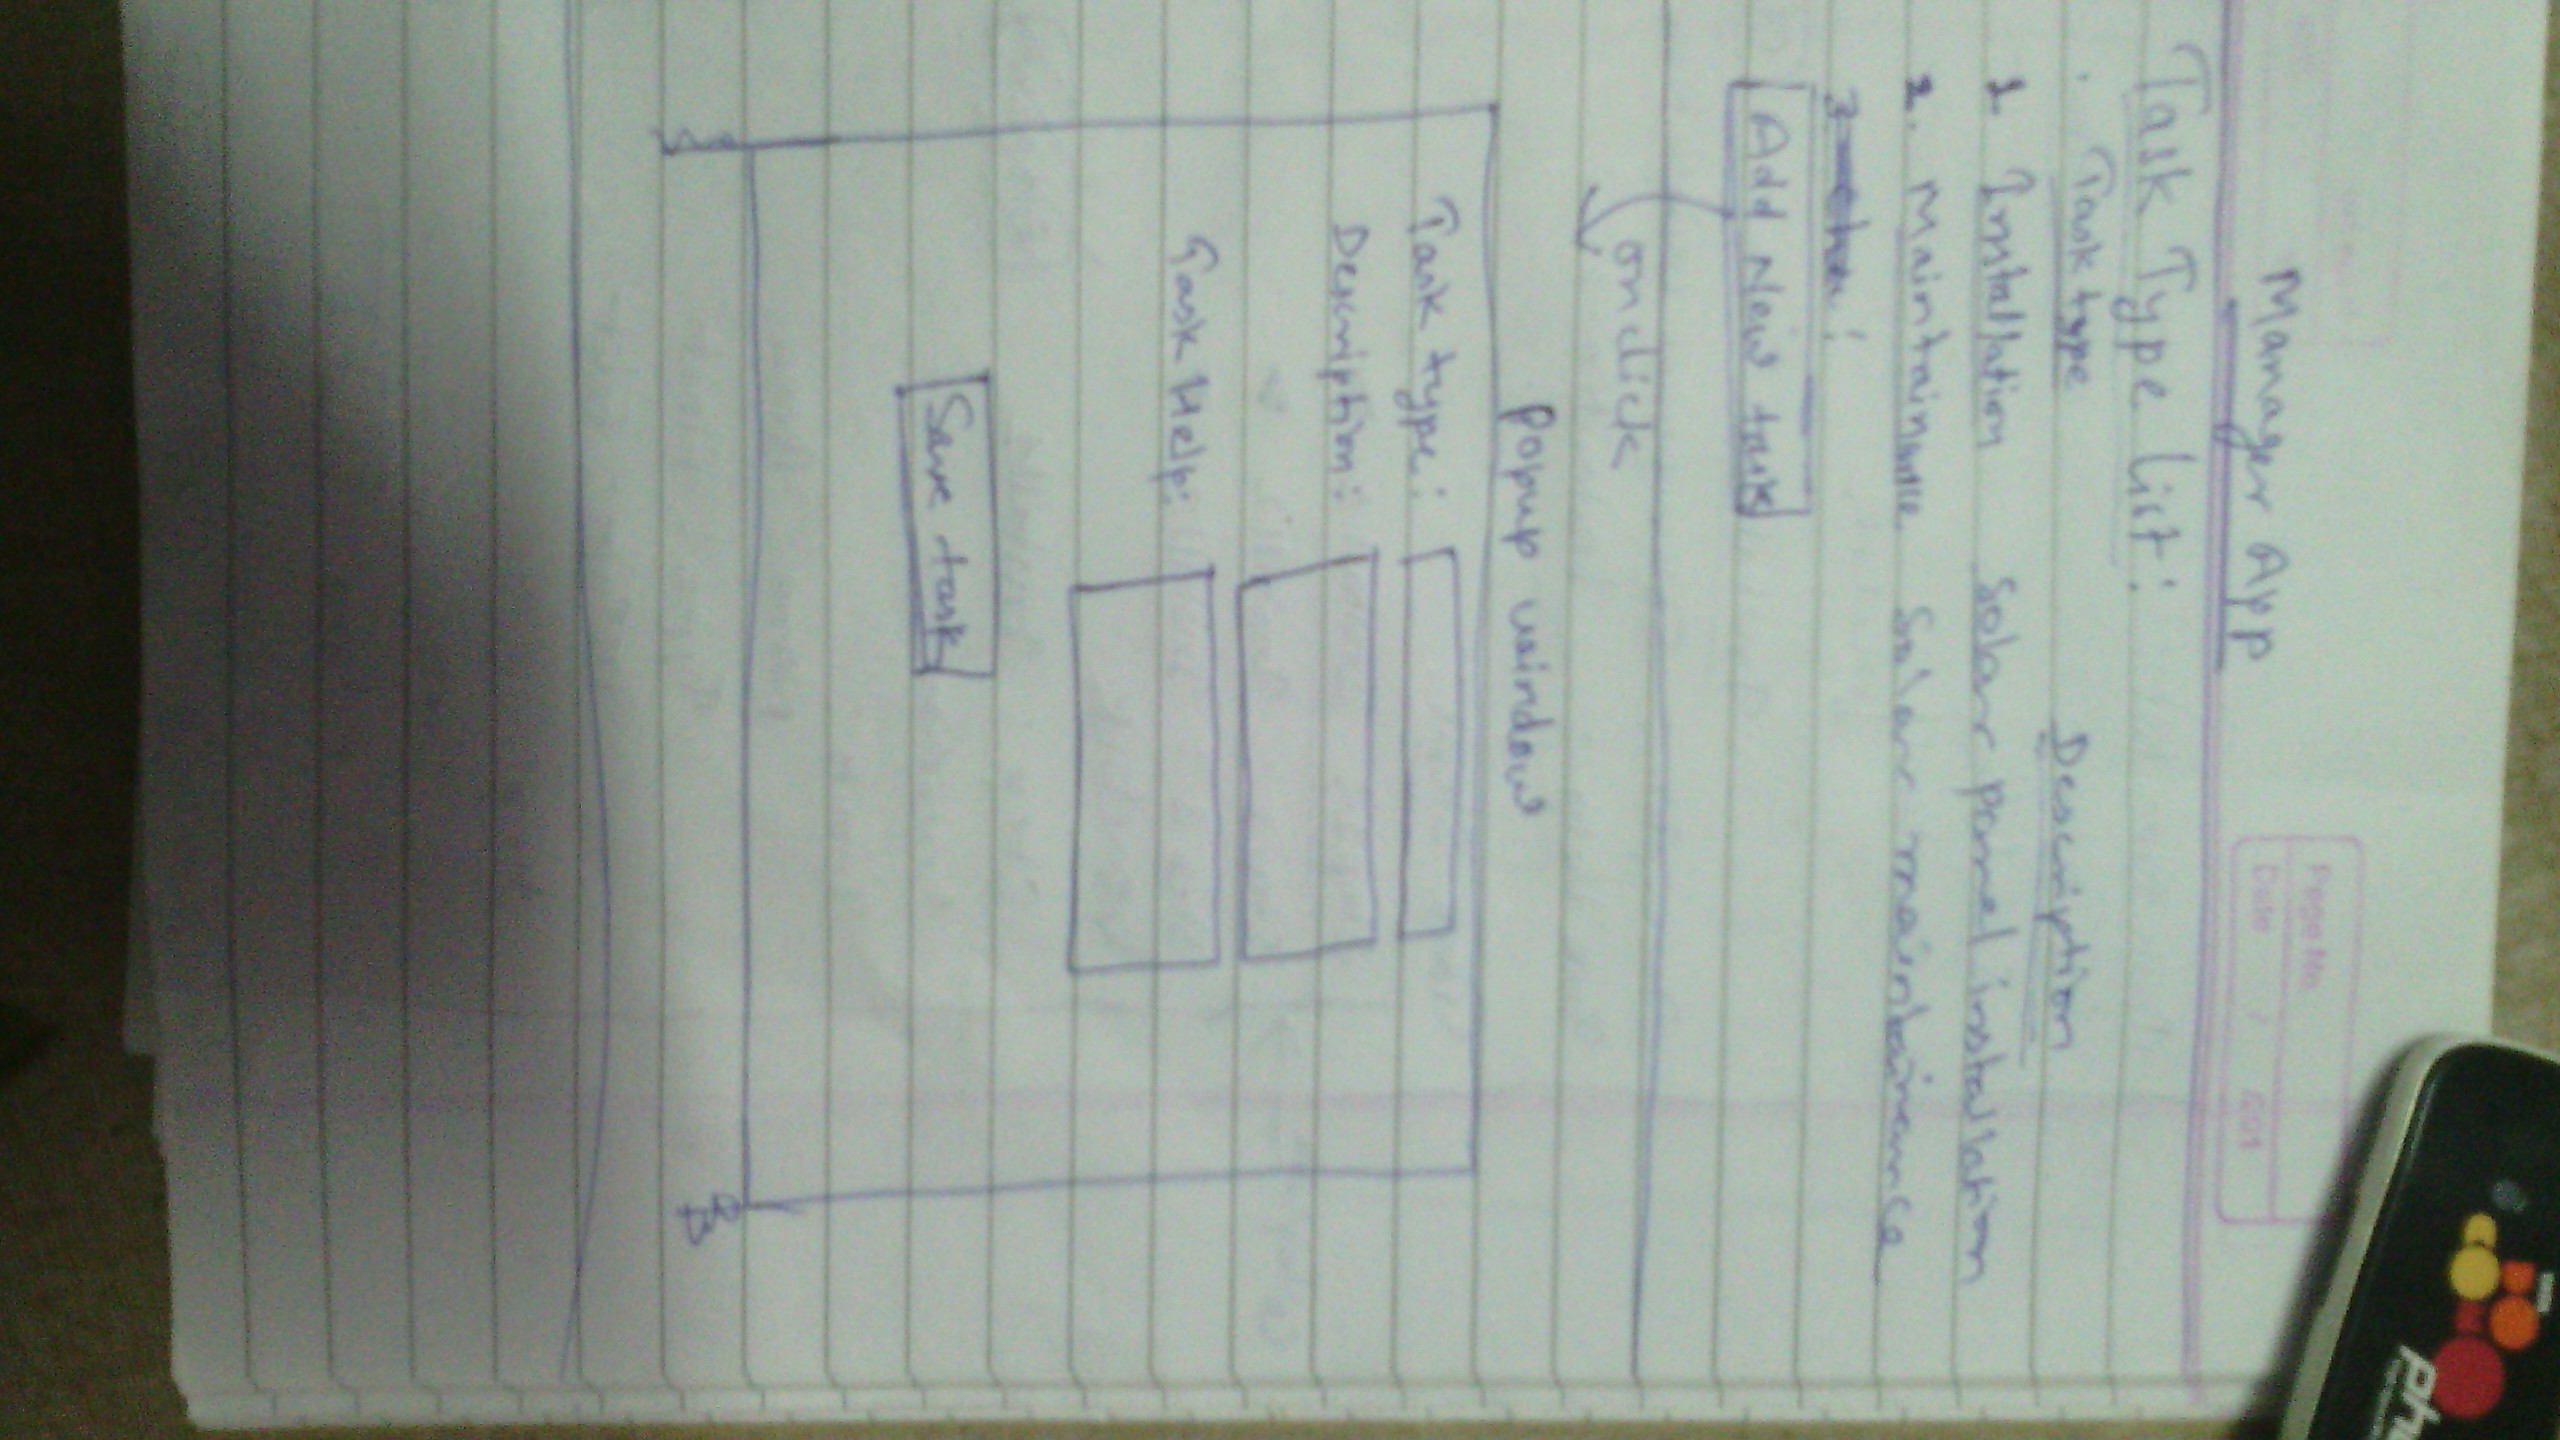 Manager App
Page No.
Date / 601
Task Type List:
Task type Description
1. Installation Solar pannel installation
2. Maintrainance Solar maintainance
Add New task
on click
Popup window
Task type:
Description:
Task Help:
Save task